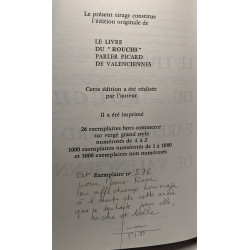 Le présent tirage constitue
l'édition originale de
LE LIVRE
DU "ROUCHI"
PARLER PICARD
DE VALENCIENNES
Cette édition a été réalisée
par l'auteur.
Il a été imprimé
26 exemplaires hors commerce
sur vergé grand style
numérotés de A à Z
1000 exemplaires numérotés de 1 à 1000
et 1000 exemplaires non numérotés
Cet Exemplaire n° 576
pour
hommage
à l'
de cette
que je souhaite, pour elle,
riche et belle